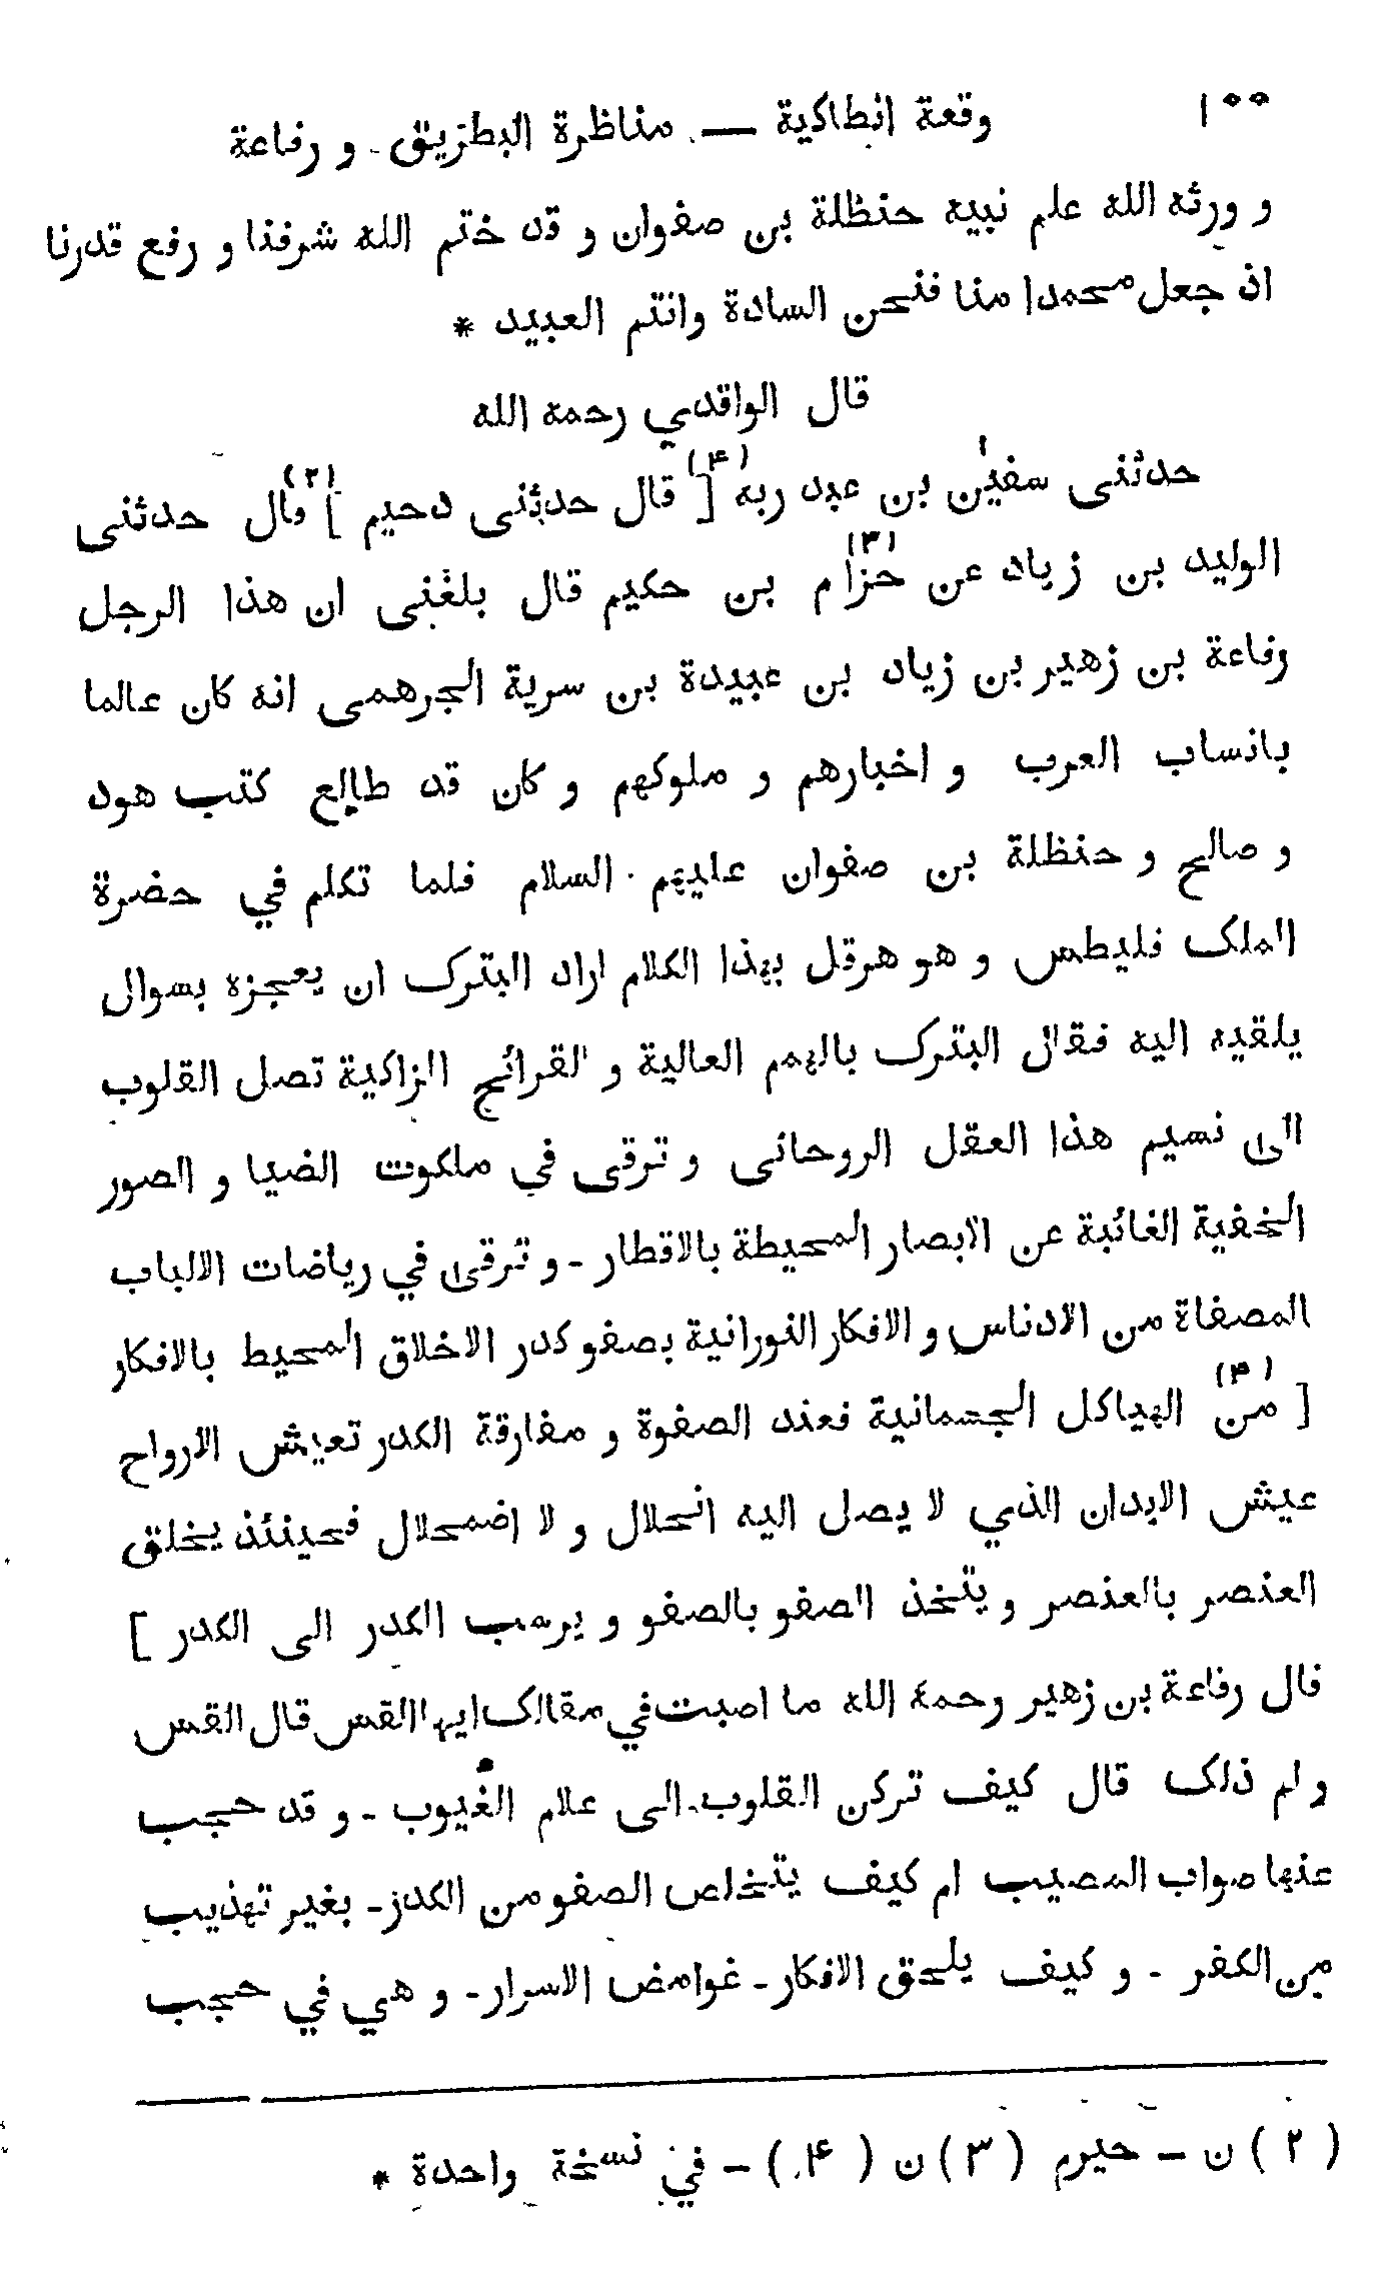 ١٠٠ وقعة انطاكية — مناظرة البطريق - و رفاعة
و ورثه الله علم نبيه حنظلة بن صفوان و قد ختم الله شرفنا و رفع قدرنا
اذ جعل محمدا منا فنحن السادة وانتم العبيد *
قال الواقدي رحمه الله
حدثنى سفين بن عبد ربه (۴) [ قال حدثنى دحيم ] (٢) قال حدثنى
الوليد بن زياد عن حزام (٣) بن حكيم قال بلغنى ان هذا الرجل
رفاعة بن زهير بن زياد بن عبيدة بن سرية الجرهمى انه كان عالما
بانساب العرب و اخبارهم و ملوكهم و كان قد طالع كتب هود
و صالح و حنظلة بن صفوان عليهم السلام فلما تكلم في حضرة
الملک فليطس و هو هرقل بهذا الكلام اراد البترک ان يعجزه بسوال
يلقيه اليه فقال البترک بالهمم العالية و القرائح الزاكية تصل القلوب
الى نسيم هذا العقل الروحانى و ترقى في ملكوت الضيا و الصور
الخفية الغائبة عن الابصار المحيطة بالاقطار - و ترقى في رياضات الالباب
المصفاة من الادناس و الافكار النورانية بصفو كدر الاخلاق المحيط بالافكار
[ من (۴) الهياكل الجسمانية فعند الصفوة و مفارقة الكدر تعيش الارواح
عيش الابدان الذي لا يصل اليه انحلال و لا اضمحلال فحينئذ يخلق
العنصر بالعنصر و يتخذ الصفو بالصفو و يرسب الكدر الى الكدر ]
قال رفاعة بن زهير رحمة الله ما اصبت في مقالک ايها القس قال القس
و لم ذلک قال كيف تركن القلوب الى علام الغيوب - و قد حجب
عنها صواب المصيب ام كيف يتخلص الصفو من الكدر - بغير تهذيب
من الكفر - و كيف يلحق الافكار - غوامض الاسرار - و هي في حجب
(٢) ن - حيرم (٣) ن (۴) - في نسخة واحدة *